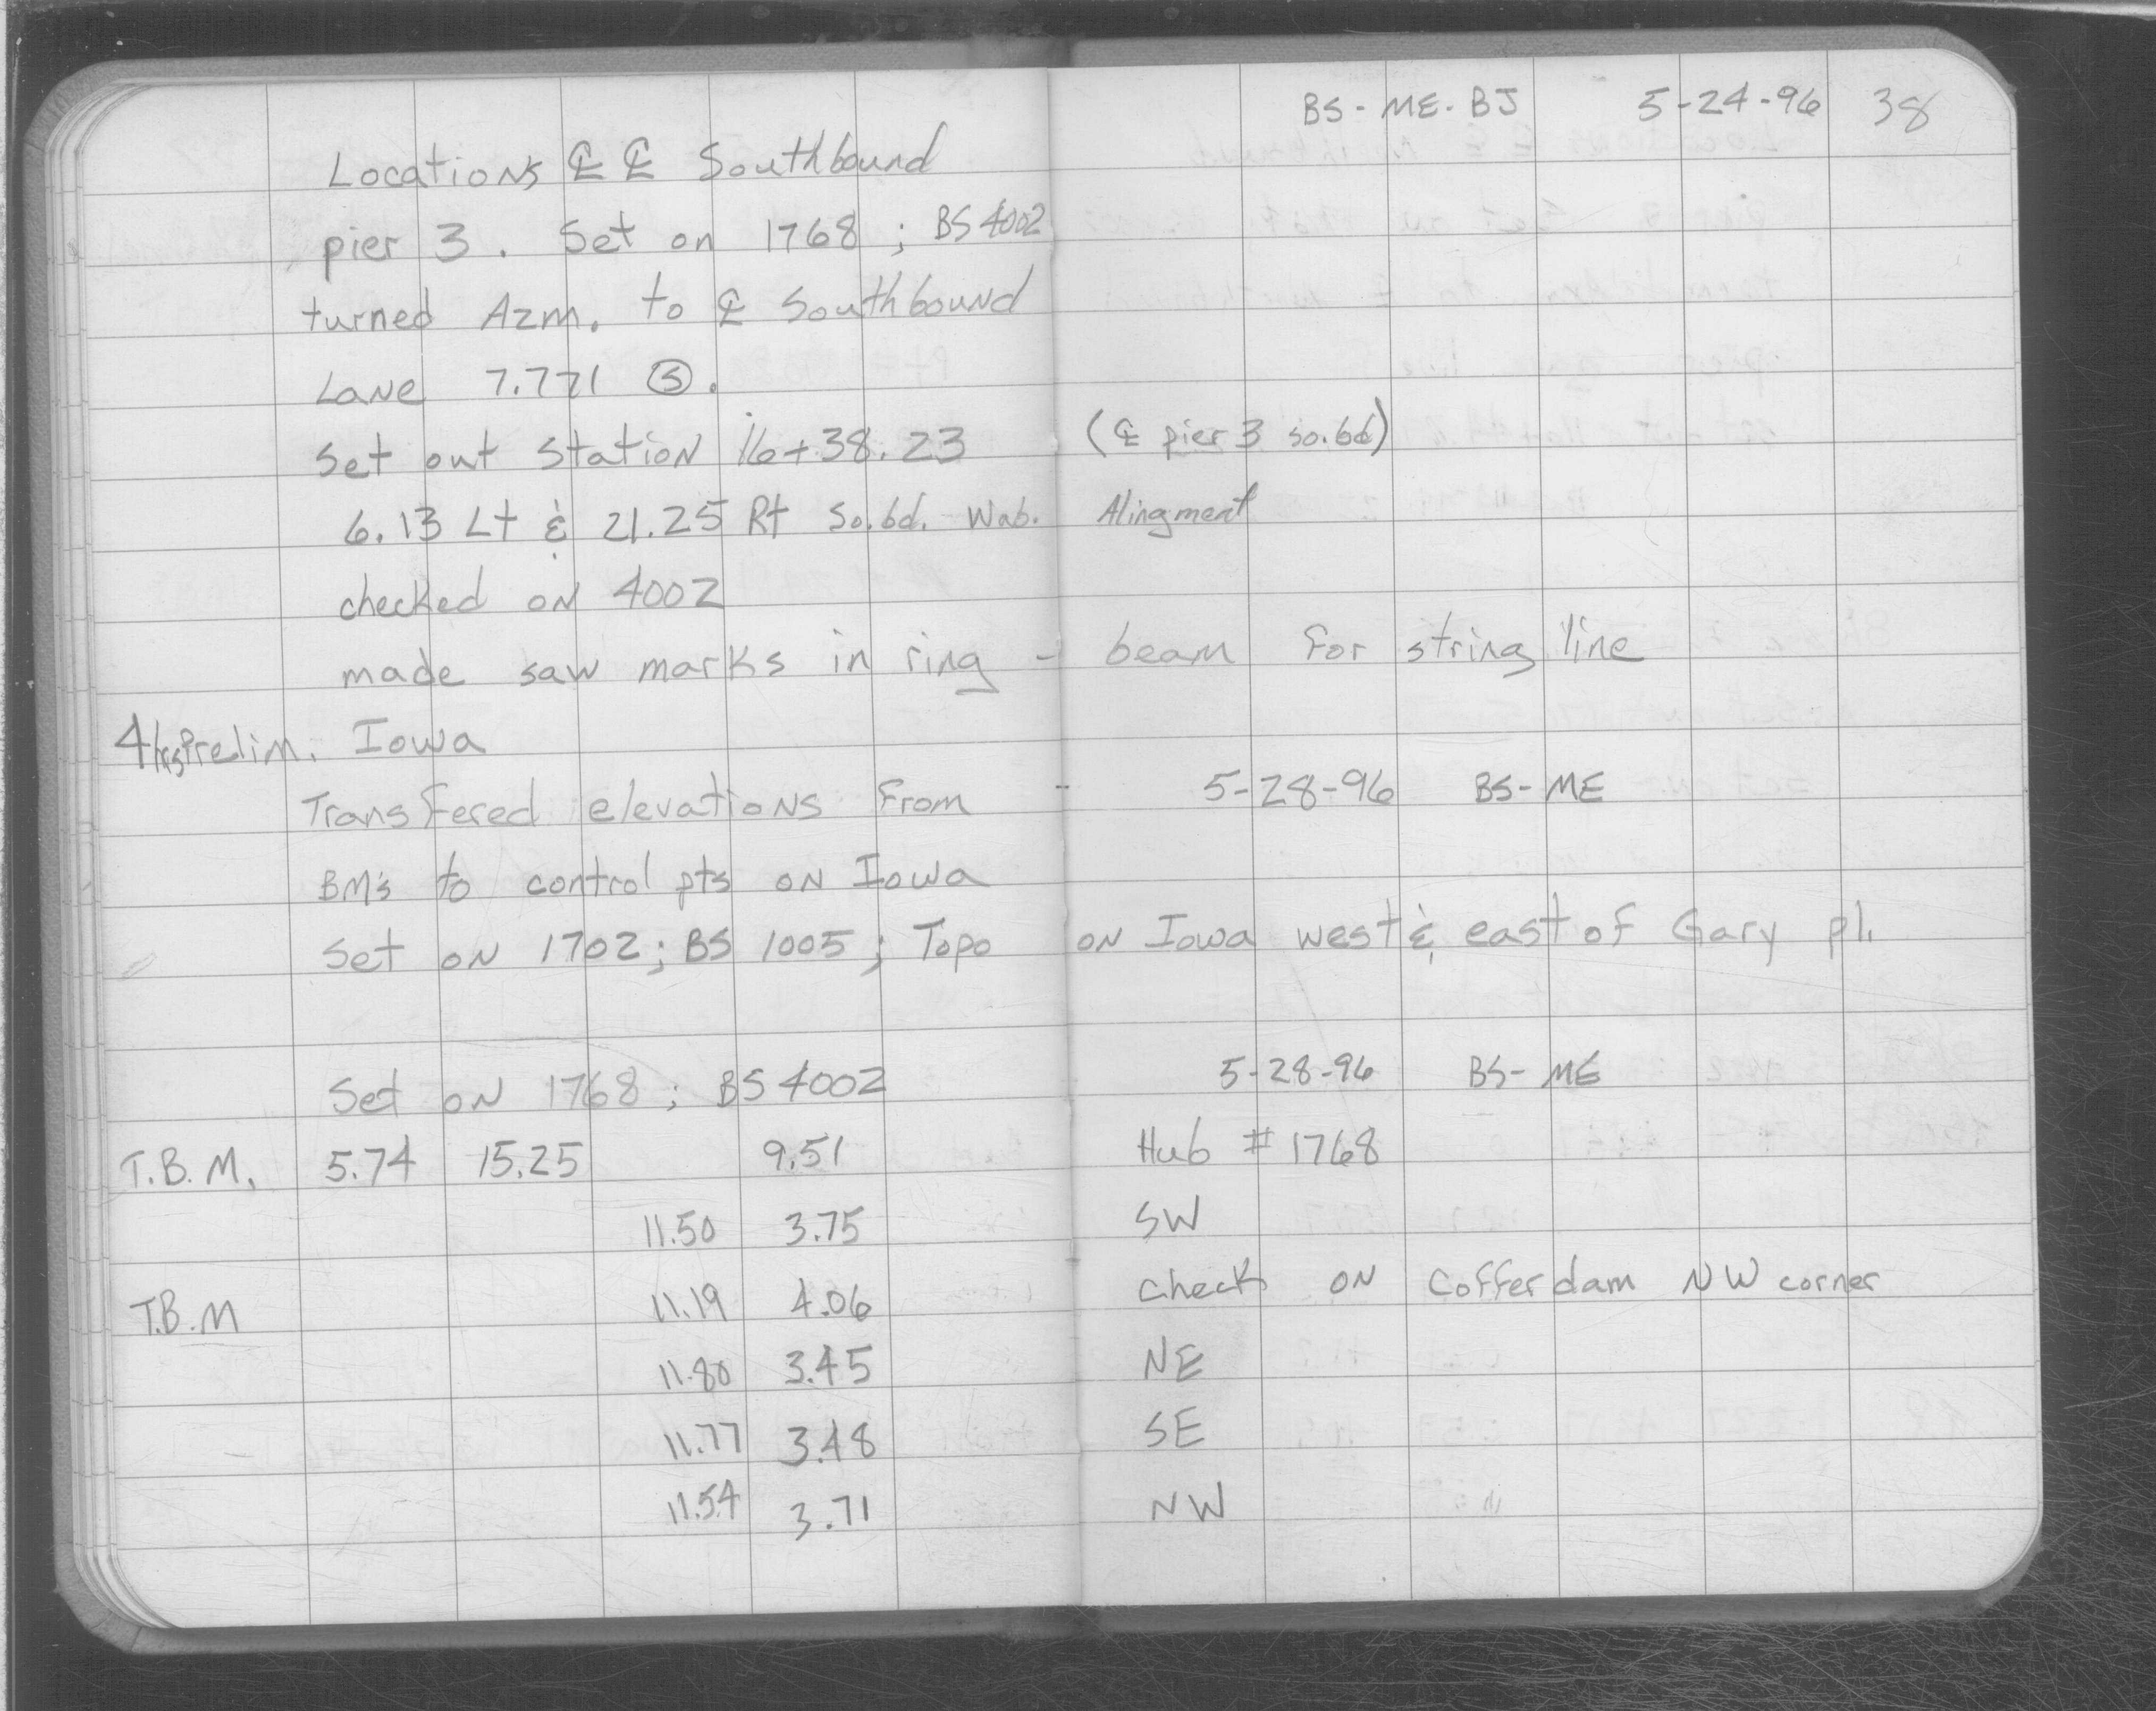 BS - ME - BJ 5-24-96 38
Locations ℄ ℄ Southbound
pier 3. Set on 1768 ; BS 4002
turned Azm. to ℄ Southbound
Lane 7.771 Ⓢ.
Set out station 16+38.23 (℄ pier 3 so.bd)
6.13 Lt & 21.25 Rt So.bd. Wab. Alingment
checked on 4002
made saw marks in ring - beam for string line
4hrs Prelim. Iowa
Transfered elevations from - 5-28-96 BS-ME
BM's to control pts on Iowa
Set on 1702; BS 1005; Topo on Iowa west & east of Gary pl.
Set on 1768 ; BS 4002 5-28-96 BS-ME
T.B.M. 5.74 15.25 9.51 Hub # 1768
11.50 3.75 SW
T.B.M 11.19 4.06 check on Cofferdam NW corner
11.80 3.45 NE
11.77 3.48 SE
11.54 3.71 NW